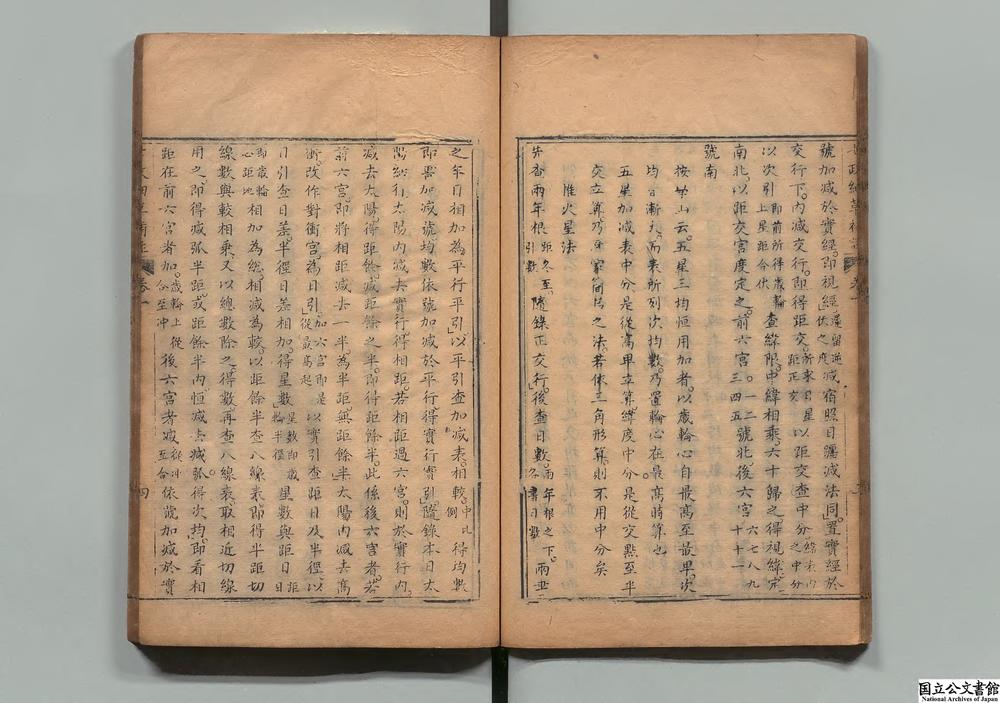 號加減於實經即視經減宿照日躔減法同置實經於
交行下内減交行即得距交所求本星以距交查中分
以次引即前所得歲輪上星距合伏查緯限中緯相乘六十歸之得視緯定
南北以距交宮度定之前六宮三四五號北後六宮
號南
五星三均恒用加者以歲輪心自最高至最卑次
均漸大而表所列次均數乃置輪心在最高時算也
五星加減表中分是從高卑立算緯度中分是從交點至半
交立算乃省簡之法若依三角形算則不用中分矣
惟火星法
先查兩年根距冬至引數隨錄正交行後查日數兩年根之下兩
之年日相加為平行平引以平引查加減表相較中比例得均數
即異加減號均數依號加減於平行得實行實引隨錄本日太
陽躔行太陽内減去實行得相距若相距過六宮則於實行内
減去太陽得距餘減距餘之半即得距餘半此係後六宮者若
前六宮即將相距減去一半為半距無距餘半太陽内減去高
衝改作對衝宮為日引加六宮即是從最高起以實引查距日及半徑以
日引查日差半徑日差相加得星數星數即歲輪半徑星數與距日
即歲輪心距地相加為總相減為較以距餘半查八線表即得半距切
線數與較相乘又以總數除之得數再查八線表取相近切線
用之即得減弧半距或距餘半内恒減去減弧得次均即看相
距在前六宮者加歲輪上從合至沖後六宮者減從沖至合依歲加減於實
卷一
四
国立公文書館
National Archives of Japan